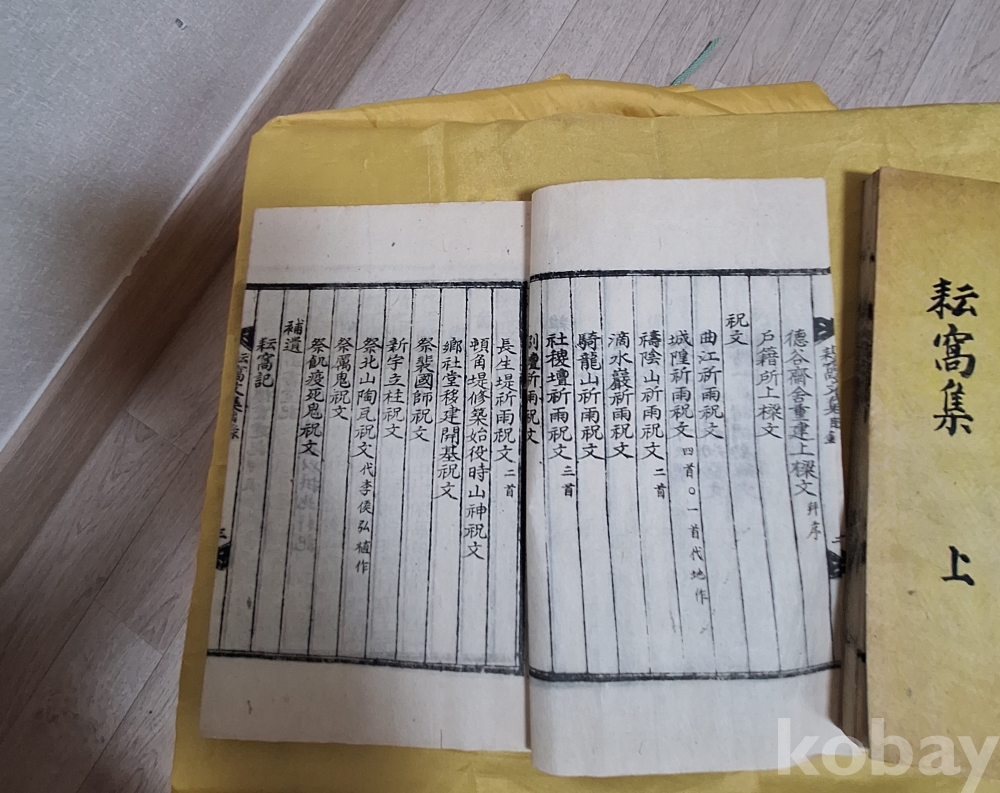 德谷齋舍重建上樑文 幷序
戶籍所上樑文
祝文
曲江祈雨祝文
城隍祈雨祝文 四首○一首代地作
禱陰山祈雨祝文 二首
滴水巖祈雨祝文
騎龍山祈雨祝文
社稷壇祈雨祝文 三首
別壇祈雨祝文
長生堤祈雨祝文 二首
頓角堤修築始役時山神祝文
鄉社堂移建開基祝文
祭裴國師祝文
新宇立柱祝文
祭北山陶瓦祝文 代李侯弘植作
祭萬鬼祝文
祭飢疫死鬼祝文
補遺
耘窩記
耘窩文集目錄
三
耘窩集 上
kobay